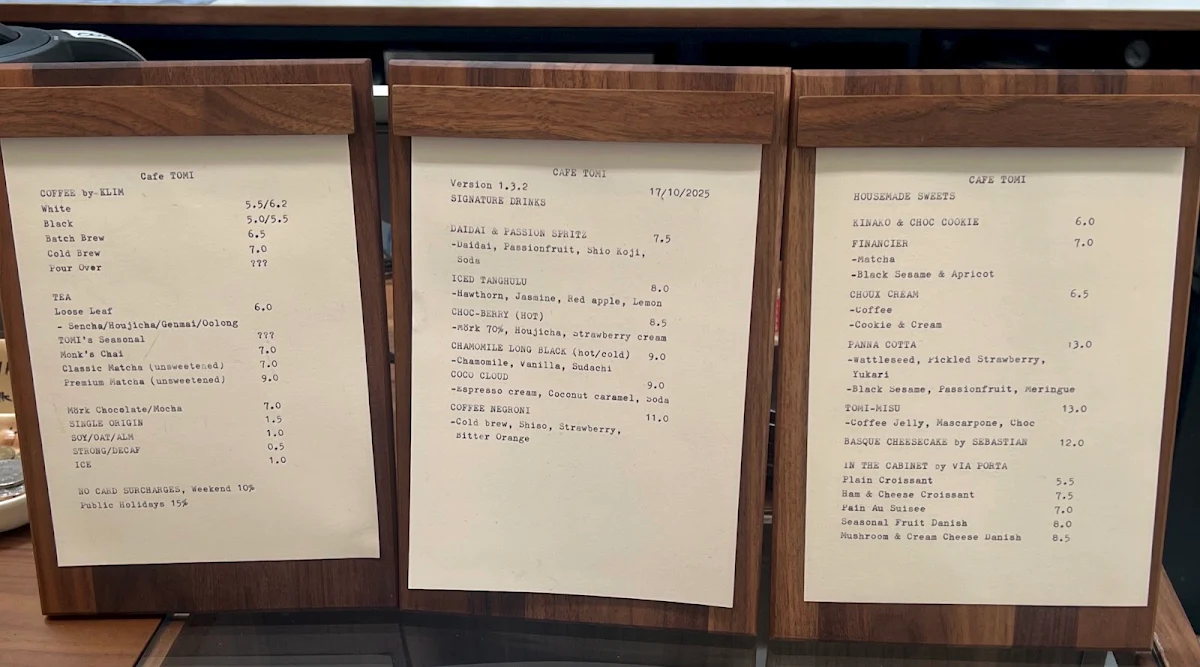 Cafe TOMI
COFFEE by KLIM
White 5.5/6.2
Black 5.0/5.5
Batch Brew 6.5
Cold Brew 7.0
Pour Over ???
TEA
Loose Leaf 6.0
- Sencha/Houjicha/Genmai/Oolong
TOMI's Seasonal ???
Monk's Chai 7.0
Classic Matcha (unsweetened) 7.0
Premium Matcha (unsweetened) 9.0
Mörk Chocolate/Mocha 7.0
SINGLE ORIGIN 1.5
SOY/OAT/ALM 1.0
STRONG/DECAF 0.5
ICE 1.0
NO CARD SURCHARGES, Weekend 10%
Public Holidays 15%
CAFE TOMI
Version 1.3.2 17/10/2025
SIGNATURE DRINKS
DAIDAI & PASSION SPRITZ 7.5
-Daidai, Passionfruit, Shio Koji,
Soda
ICED TANGHULU 8.0
-Hawthorn, Jasmine, Red apple, Lemon
CHOC-BERRY (HOT) 8.5
-Mörk 70%, Houjicha, Strawberry cream
CHAMOMILE LONG BLACK (hot/cold) 9.0
-Chamomile, Vanilla, Sudachi
COCO CLOUD 9.0
-Espresso cream, Coconut caramel, Soda
COFFEE NEGRONI 11.0
-Cold brew, Shiso, Strawberry,
Bitter Orange
CAFE TOMI
HOUSEMADE SWEETS
KINAKO & CHOC COOKIE 6.0
FINANCIER 7.0
-Matcha
-Black Sesame & Apricot
CHOUX CREAM 6.5
-Coffee
-Cookie & Cream
PANNA COTTA 13.0
-Wattleseed, Pickled Strawberry,
Yukari
-Black Sesame, Passionfruit, Meringue
TOMI-MISU 13.0
-Coffee Jelly, Mascarpone, Choc
BASQUE CHEESECAKE by SEBASTIAN 12.0
IN THE CABINET by VIA PORTA
Plain Croissant 5.5
Ham & Cheese Croissant 7.5
Pain Au Suisee 7.0
Seasonal Fruit Danish 8.0
Mushroom & Cream Cheese Danish 8.5